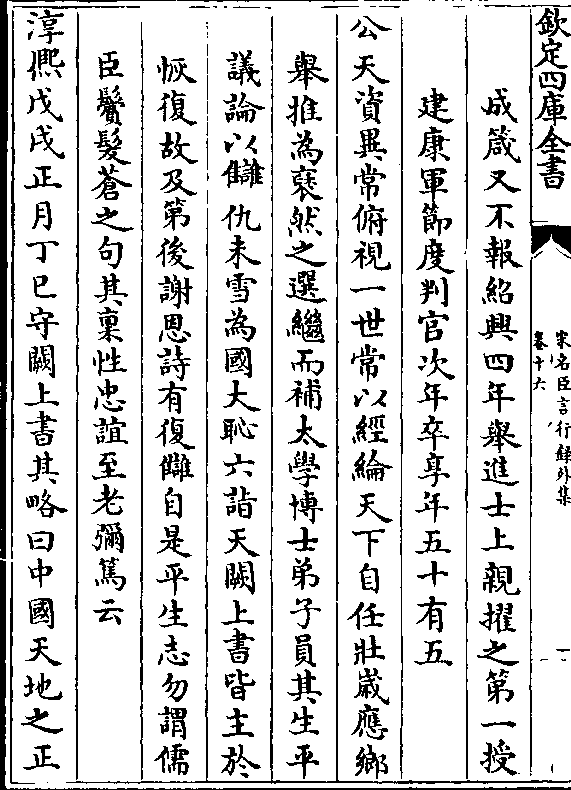 欽定四庫全書
宋名臣言行録外集
卷十六
成箴又不報紹興四年舉進士上親擢之第一授
建康軍節度判官次年卒享年五十有五
公天資異常俯視一世常以經綸天下自任壯歲應鄉
舉推為裒然之選繼而補太學博士弟子員其生平
議論以讎仇未雪為國大恥六詣天闕上書皆主於
恢復故及第後謝恩詩有復讎自是平生志勿謂儒
臣鬢髮蒼之句其稟性忠誼至老彌篤云
淳熈戊戌正月丁巳守闕上書其略曰中國天地之正